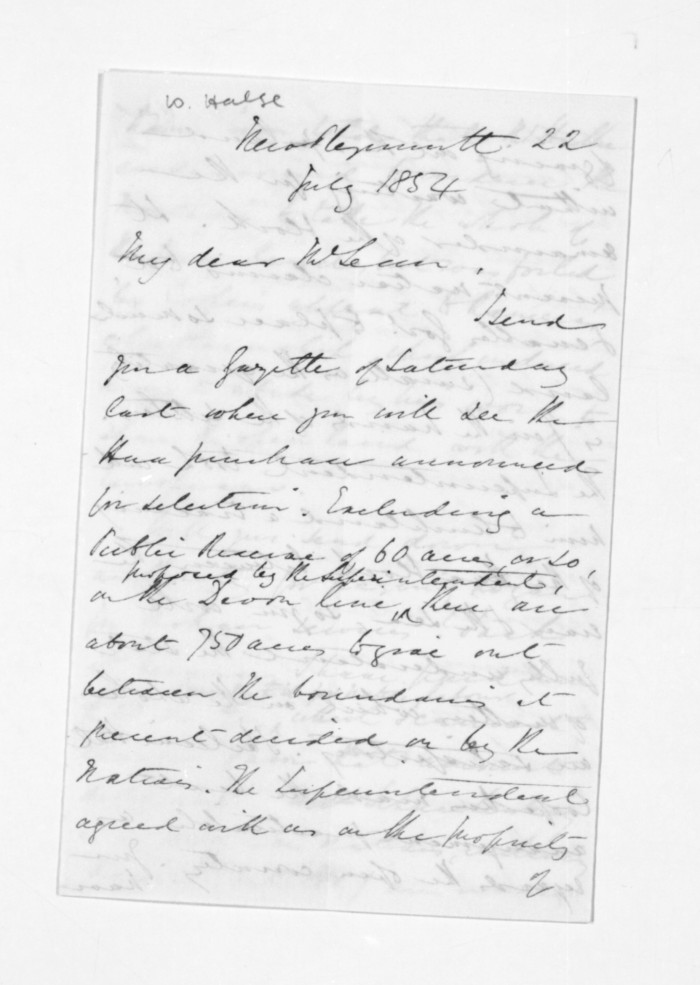 W. Halse
New Plymouth 22
July 1854
My dear McLean,
I send
you a Gazette of Saturday
last where you will see the
Hua purchase announced
for selection. Excluding a
Public Reserve of 60 acres, or so,
proposed by the Superintendent,
on the Devon line, there are
about 750 acres to give out
between the boundaries at
present decided on by the
Natives. The Superintendent
agreed with us on the propriety
of